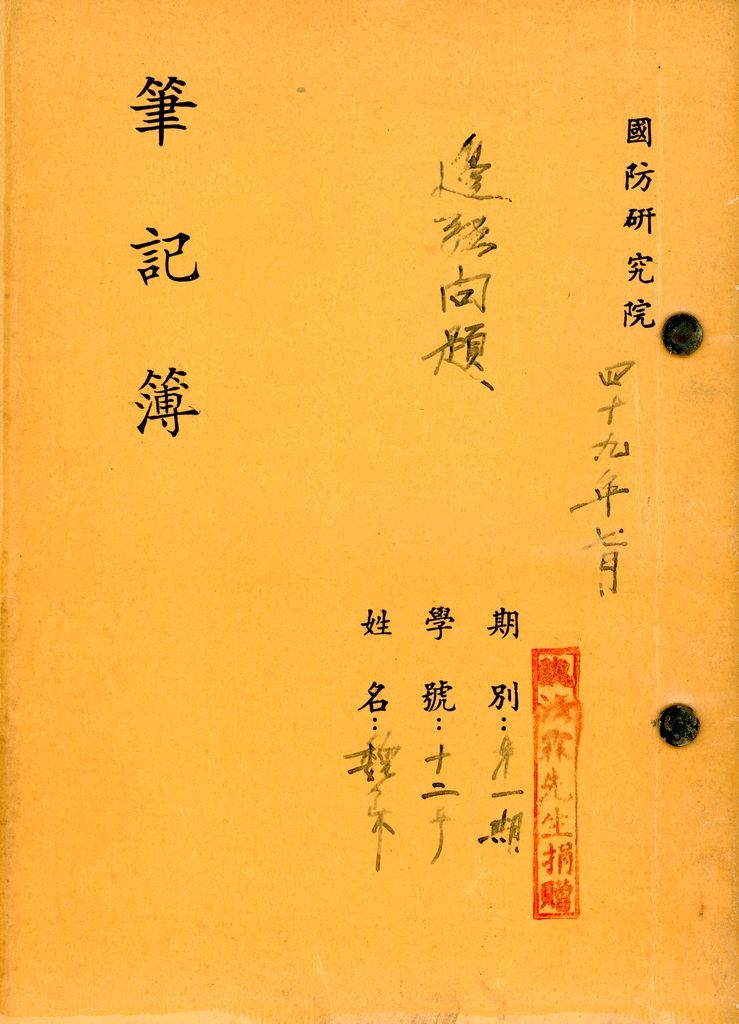 國防研究院
四十九年七月
邊疆問題
筆記簿
期別：第一期
學號：十二号
姓名：魏
先生捐贈